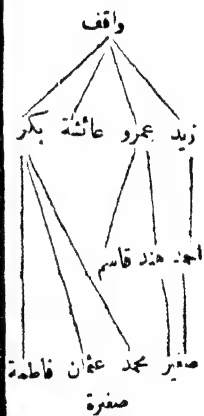 واقف
زيد عمرو عائشة بكر
احمد هند قاسم
صغير محمد عثمان فاطمة
صغيرة